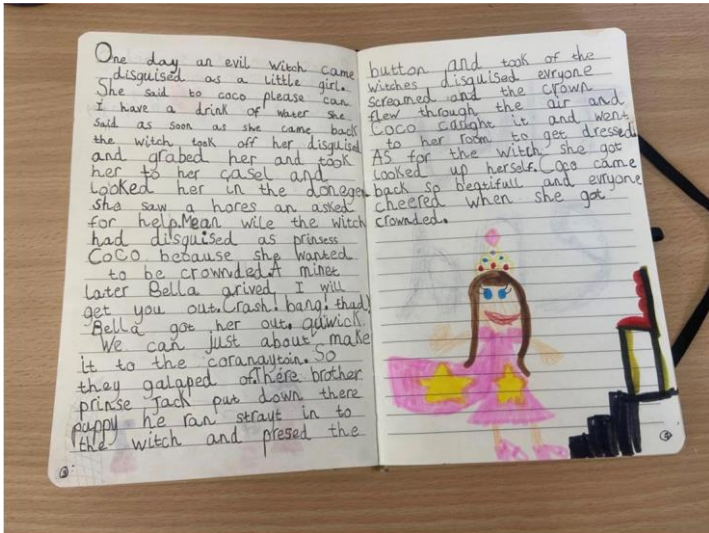 One day an evil witch came
disguised as a little girl.
She said to coco please can
I have a drink of water she
said as soon as she came back
the witch took off her disguised
and grabed her and took
her to her casel and
Looked her in the donegen
she saw a hores an asked
for help.Mean wile the witch
had disguised as prinsess
CoCo because she wanted
to be crownded.A minet
later Bella arived I will
get you out.Crash! bang! thad!
Bella got her out. quwick
We can just about make
it to the coranaytoin. So
they galaped of.There brother
prinse Jack put down there
pappy he ran strayt in to
the witch and presed the
button and took of the
witches disguised evryone
screamed and the crown
flew through the air and
Coco caught it and went
to her room to get dressed.
AS for the witch she got
Looked up herself.Coco came
back so beatifull and evryone
cheered when she got
crownded.